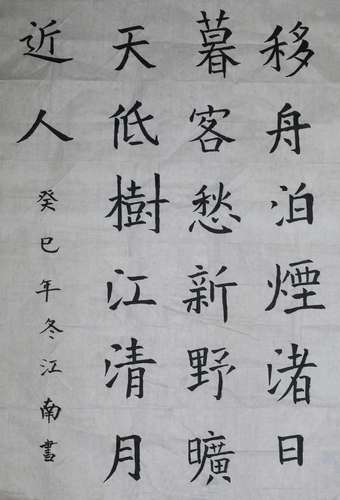 移舟泊煙渚日
暮客愁新野曠
天低樹江清月
近人
癸巳年冬江南書